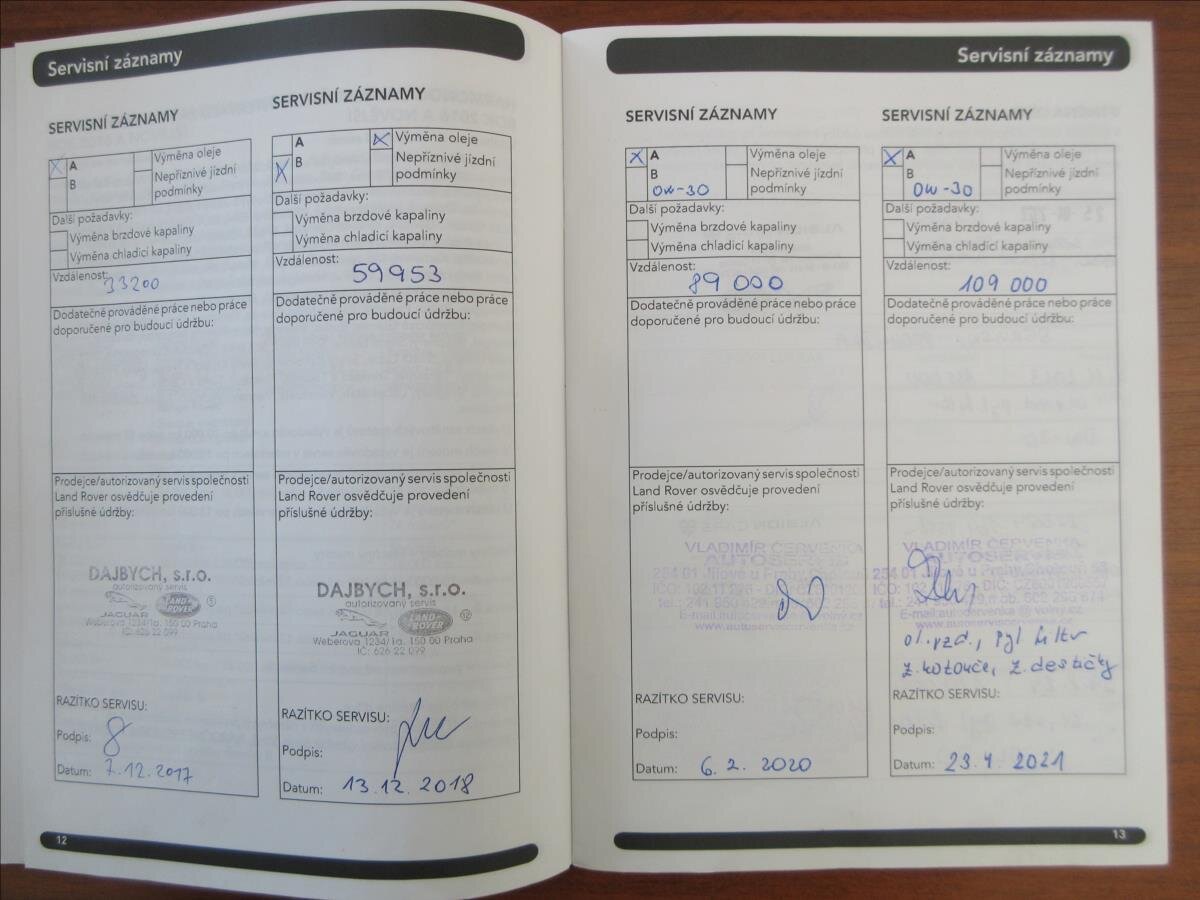 Servisní záznamy
SERVISNÍ ZÁZNAMY
X A
B
Výměna oleje
Nepříznivé jízdní
podmínky
Další požadavky:
Výměna brzdové kapaliny
Výměna chladicí kapaliny
Vzdálenost:
33200
Dodatečně prováděné práce nebo práce
doporučené pro budoucí údržbu:
Prodejce/autorizovaný servis společnosti
Land Rover osvědčuje provedení
příslušné údržby:
DAJBYCH, s.r.o.
autorizovaný servis
JAGUAR
LAND ROVER
Weberova 1234/1a, 150 00 Praha
IČ: 626 22 099
RAZÍTKO SERVISU:
Podpis:
Datum: 7.12.2017
12
SERVISNÍ ZÁZNAMY
A
X B
X Výměna oleje
Nepříznivé jízdní
podmínky
Další požadavky:
Výměna brzdové kapaliny
Výměna chladicí kapaliny
Vzdálenost:
59953
Dodatečně prováděné práce nebo práce
doporučené pro budoucí údržbu:
Prodejce/autorizovaný servis společnosti
Land Rover osvědčuje provedení
příslušné údržby:
DAJBYCH, s.r.o.
autorizovaný servis
JAGUAR
LAND ROVER
Weberova 1234/1a, 150 00 Praha
IČ: 626 22 099
RAZÍTKO SERVISU:
Podpis:
Datum: 13.12.2018
Servisní záznamy
SERVISNÍ ZÁZNAMY
X A
B
0W-30
Výměna oleje
Nepříznivé jízdní
podmínky
Další požadavky:
Výměna brzdové kapaliny
Výměna chladicí kapaliny
Vzdálenost:
89 000
Dodatečně prováděné práce nebo práce
doporučené pro budoucí údržbu:
Prodejce/autorizovaný servis společnosti
Land Rover osvědčuje provedení
příslušné údržby:
VLADIMÍR ČERVENKA
AUTOSERVIS
254 01 Jílové u Prahy
RAZÍTKO SERVISU:
Podpis:
Datum: 6. 2. 2020
SERVISNÍ ZÁZNAMY
X A
B
0W-30
Výměna oleje
Nepříznivé jízdní
podmínky
Další požadavky:
Výměna brzdové kapaliny
Výměna chladicí kapaliny
Vzdálenost:
109 000
Dodatečně prováděné práce nebo práce
doporučené pro budoucí údržbu:
Prodejce/autorizovaný servis společnosti
Land Rover osvědčuje provedení
příslušné údržby:
VLADIMÍR ČERVENKA
AUTOSERVIS
254 01 Jílové u Prahy
ol. vzd., pyl filtr
z. kotouče, z. destičky
RAZÍTKO SERVISU:
Podpis:
Datum: 23.4. 2021
13